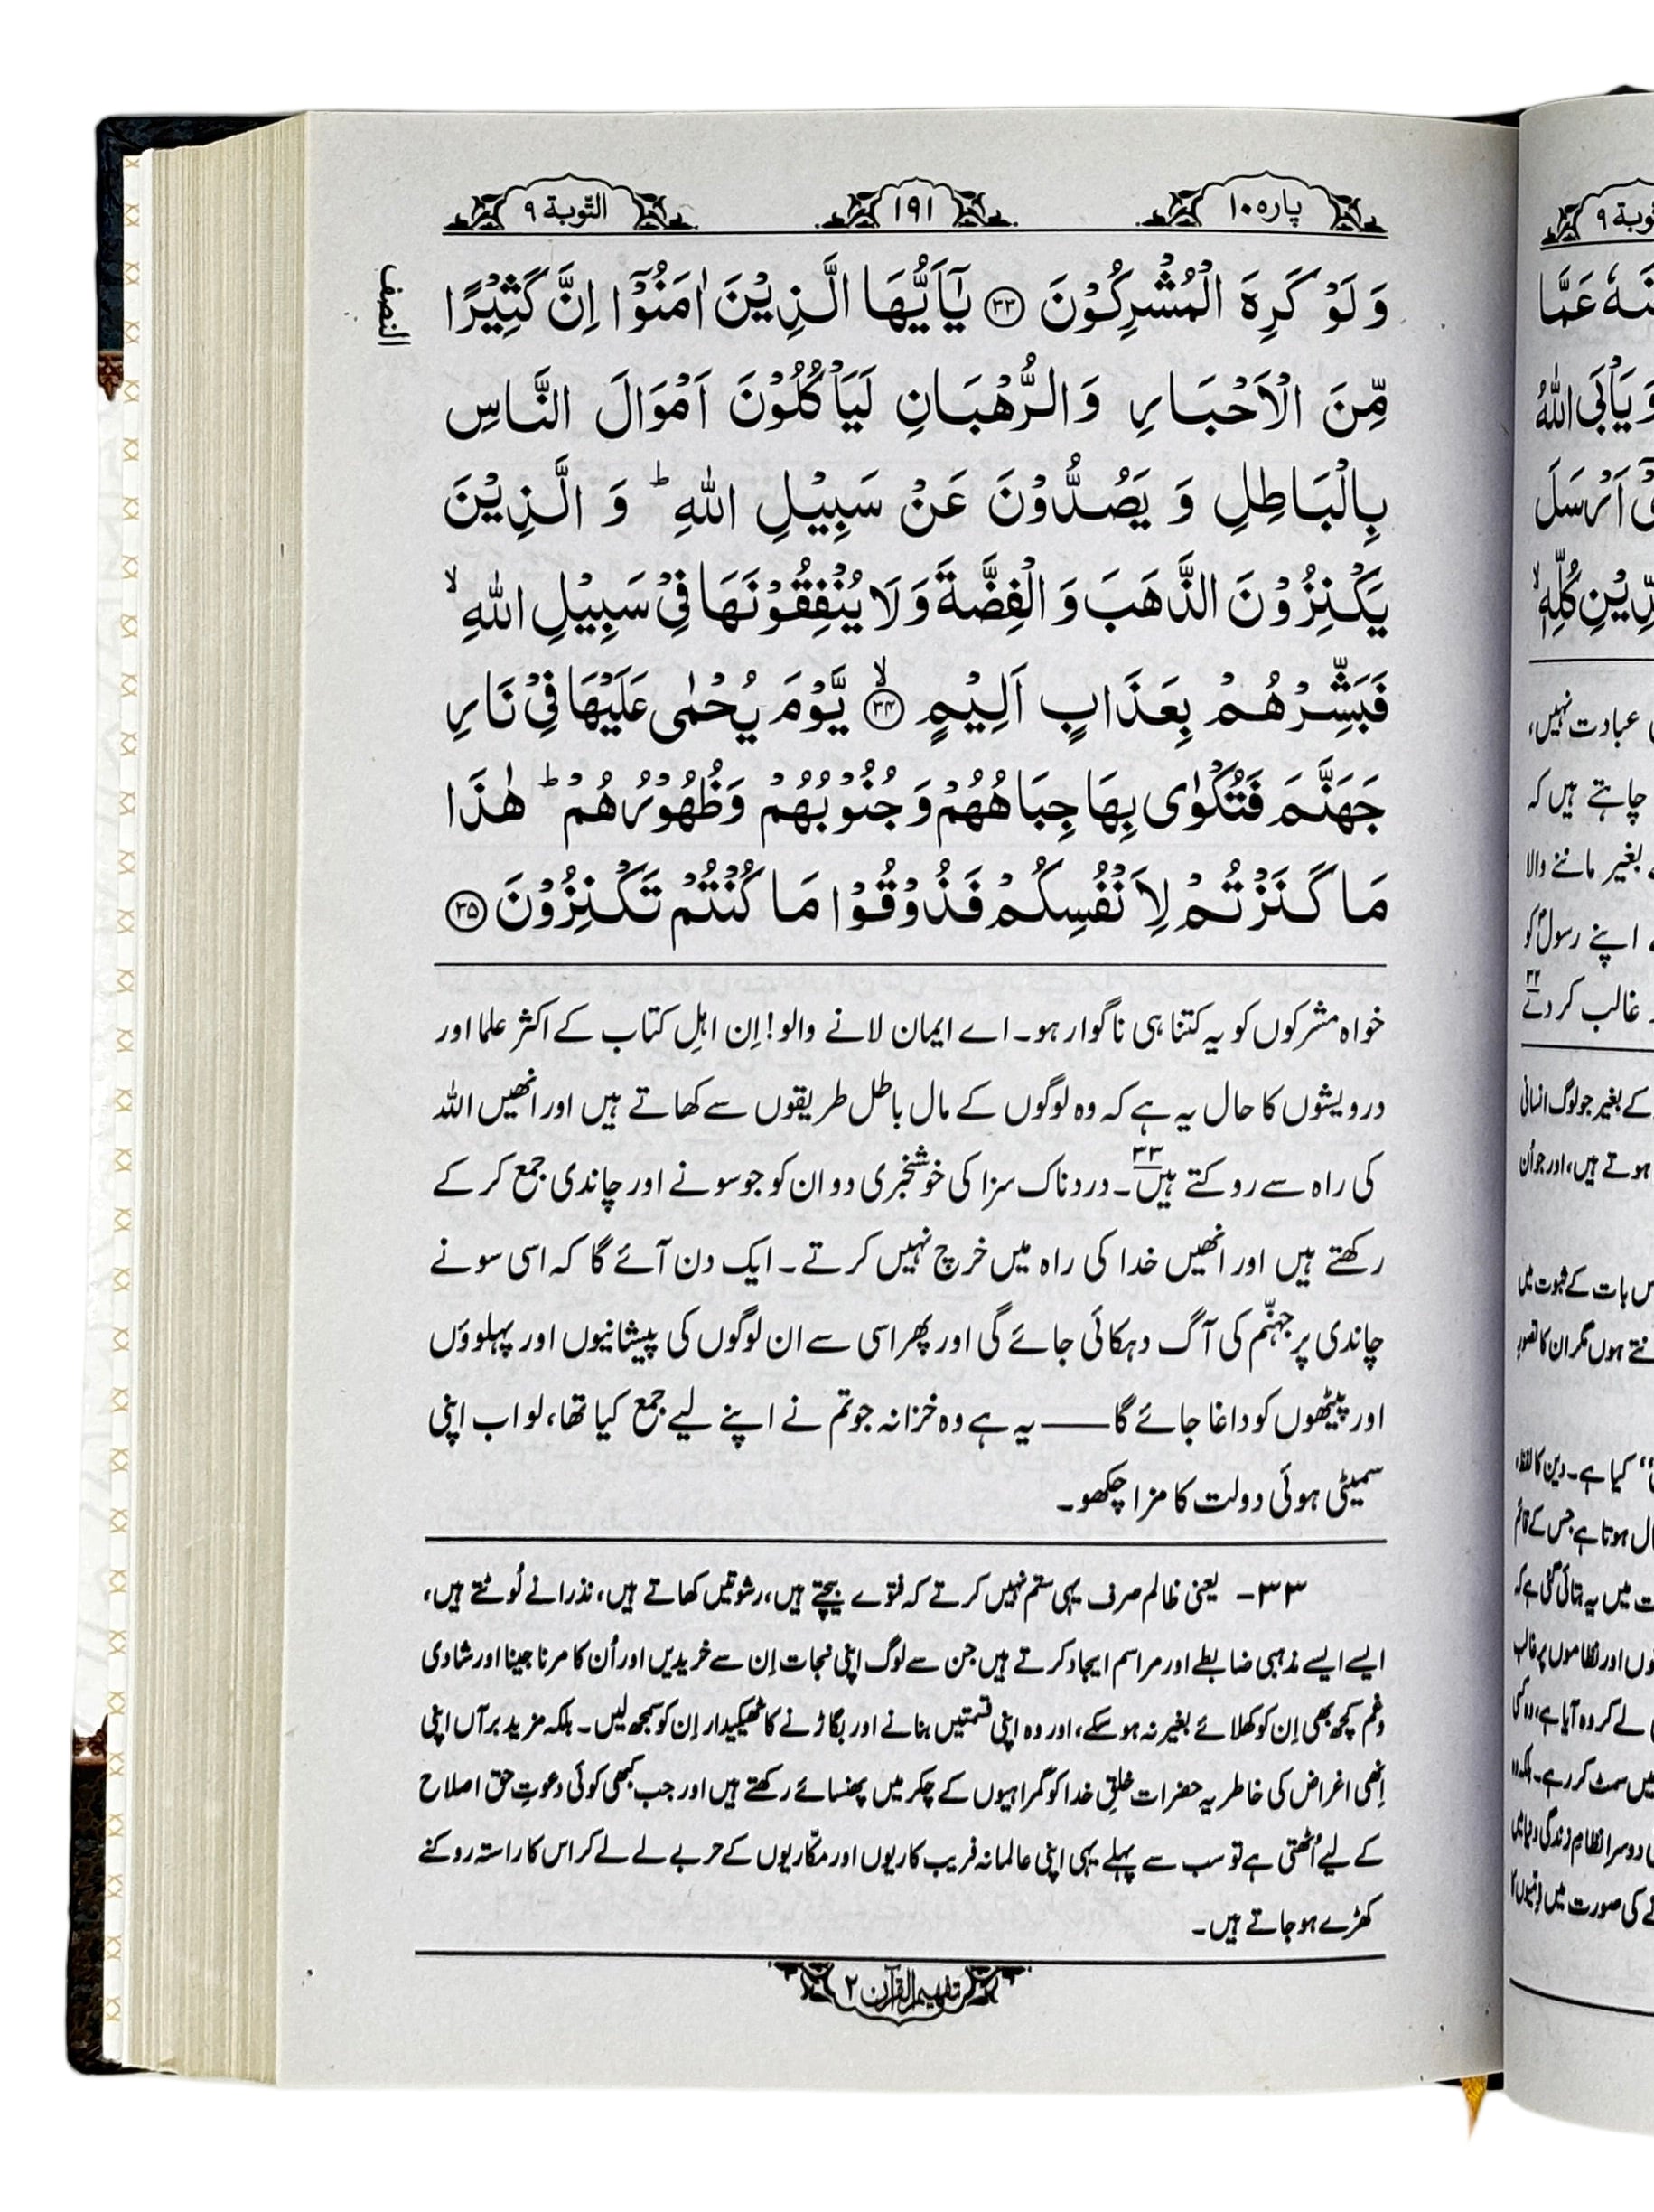 پارہ ۱۰
۱۹۱
التّوبة ۹
وَ لَوْ كَرِهَ الْمُشْرِكُوْنَ ۝۳۳ يٰۤاَيُّهَا الَّذِيْنَ اٰمَنُوْۤا اِنَّ كَثِيْرًا
النصف
مِّنَ الْاَحْبَارِ وَالرُّهْبَانِ لَيَاْكُلُوْنَ اَمْوَالَ النَّاسِ
بِالْبَاطِلِ وَ يَصُدُّوْنَ عَنْ سَبِيْلِ اللّٰهِ ؕ وَ الَّذِيْنَ
يَكْنِزُوْنَ الذَّهَبَ وَ الْفِضَّةَ وَ لَا يُنْفِقُوْنَهَا فِيْ سَبِيْلِ اللّٰهِ ۙ
فَبَشِّرْهُمْ بِعَذَابٍ اَلِيْمٍ ۙ۝۳۴ يَّوْمَ يُحْمٰى عَلَيْهَا فِيْ نَارِ
جَهَنَّمَ فَتُكْوٰى بِهَا جِبَاهُهُمْ وَ جُنُوْبُهُمْ وَظُهُوْرُهُمْ ؕ هٰذَا
مَا كَنَزْتُمْ لِاَنْفُسِكُمْ فَذُوْقُوْا مَا كُنْتُمْ تَكْنِزُوْنَ ۝۳۵
خواہ مشرکوں کو یہ کتنا ہی ناگوار ہو۔ اے ایمان لانے والو! اِن اہلِ کتاب کے اکثر علما اور
درویشوں کا حال یہ ہے کہ وہ لوگوں کے مال باطل طریقوں سے کھاتے ہیں اور انھیں اللہ
کی راہ سے روکتے ہیں۳۳۔ دردناک سزا کی خوشخبری دو ان کو جو سونے اور چاندی جمع کر کے
رکھتے ہیں اور انھیں خدا کی راہ میں خرچ نہیں کرتے۔ ایک دن آئے گا کہ اسی سونے
چاندی پر جہنّم کی آگ دہکائی جائے گی اور پھر اسی سے ان لوگوں کی پیشانیوں اور پہلوؤں
اور پیٹھوں کو داغا جائے گا —— یہ ہے وہ خزانہ جو تم نے اپنے لیے جمع کیا تھا، لو اب اپنی
سمیٹی ہوئی دولت کا مزا چکھو۔
۳۳- یعنی ظالم صرف یہی ستم نہیں کرتے کہ فتوے بیچتے ہیں، رشوتیں کھاتے ہیں، نذرانے لُوٹتے ہیں،
ایسے ایسے مذہبی ضابطے اور مراسم ایجاد کرتے ہیں جن سے لوگ اپنی نجات اِن سے خریدیں اور اُن کا مرنا جینا اور شادی
و غم کچھ بھی اِن کو کھلائے بغیر نہ ہو سکے، اور وہ اپنی قسمتیں بنانے اور بگاڑنے کا ٹھیکیدار اِن کو سمجھ لیں۔ بلکہ مزید برآں اپنی
اِنھی اغراض کی خاطر یہ حضرات خلقِ خدا کو گمراہیوں کے چکر میں پھنسائے رکھتے ہیں اور جب کبھی کوئی دعوتِ حق اصلاح
کے لیے اُٹھتی ہے تو سب سے پہلے یہی اپنی عالمانہ فریب کاریوں اور مکّاریوں کے حربے لے لے کر اس کا راستہ روکنے
کھڑے ہو جاتے ہیں۔
تفہیم القرآن ۲
توبة ۹
عَمَّا
وَ يَاْبَى اللّٰهُ
اَرْسَلَ
كُلِّهٖ ۙ
عبادت نہیں،
چاہتے ہیں کہ
بغیر ماننے والا
اپنے رسولؐ کو
غالب کر دے۳۲
کے بغیر جو لوگ انسانی
ہوتے ہیں، اور جو اُن
بات کے ثبوت میں
ہوں مگر ان کا تصور
کیا ہے۔ دین کا لفظ،
ہوتا ہے جس کے قائم
میں یہ بتائی گئی ہے کہ
اور نظاموں پر غالب
لے کر وہ آیا ہے، وہ کسی
سمٹ کر رہے۔ بلکہ وہ
دوسرا نظامِ زندگی دنیا میں
کی صورت میں